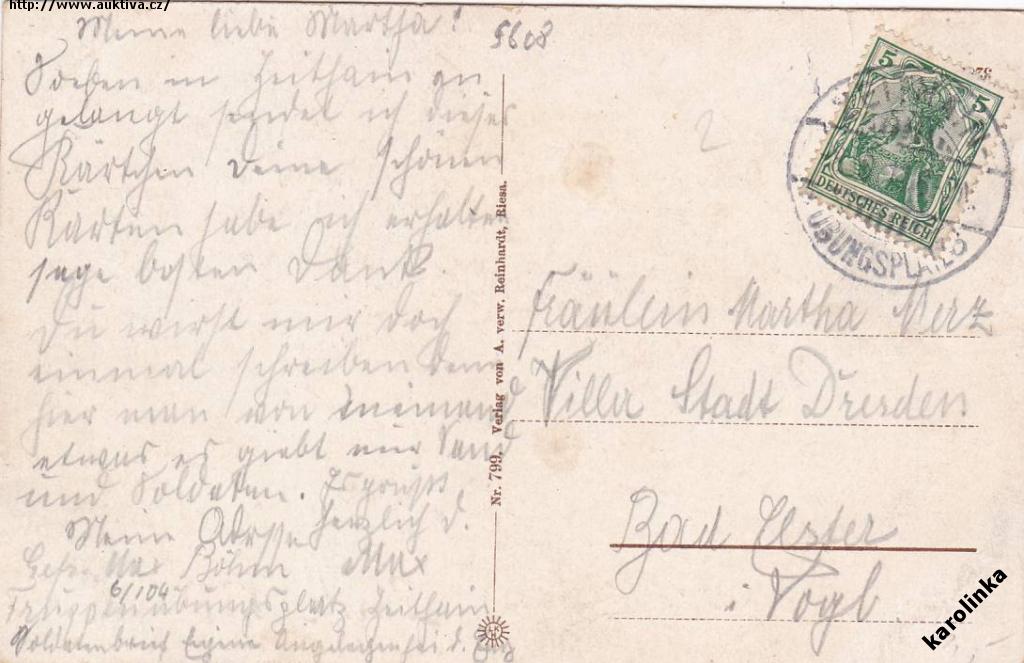 http://www.auktiva.cz/
Meine liebe Martha!
Soeben in Zeithain an
gelangt sendet ich dieses
Kärtchen Deine schönen
Karten habe ich erhalten
sage besten Dank.
Du wirst mir doch
einmal schreiben denn
hier man von niemand
etwas es giebt nur Sand
und Soldaten. Es grüßt
Meine Adresse herzlich d.
Gefr. Max Böhm Max
6/104
Truppenübungsplatz Zeithain
Soldatenbrief Eigene Angelegenheit d. Empf
5608
2
5
5
DEUTSCHES REICH
ÜBUNGSPLATZ
Nr. 799, Verlag von A. verw. Reinhardt, Riesa.
Fräulein Martha Merz
Villa Stadt Dresden
Bad Elster
i. Vogl.
karolinka